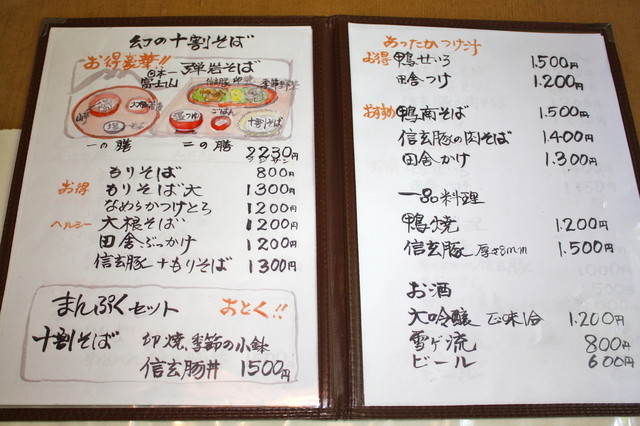 幻の十割そば
お得豪華!!
日本一
富士山
弾岩そば
ごはん
十割そば
一の膳 二の膳 2230円
もりそば 800円
お得 もりそば大 1300円
なめらかつけとろ 1200円
ヘルシー 大根そば 1200円
田舎ぶっかけ 1200円
信玄豚+もりそば 1300円
まんぷくセット おとく!!
十割そば 卵焼、季節の小鉢
信玄豚丼 1500円
あったかつけ汁
お得 鴨せいろ 1.500円
田舎つけ 1.200円
おすすめ 鴨南そば 1.500円
信玄豚の肉そば 1.400円
田舎かけ 1.300円
一品料理
鴨焼 1.200円
信玄豚 厚さ8mm 1.500円
お酒
大吟醸 正味1合 1.200円
雪ヶ流 800円
ビール 600円